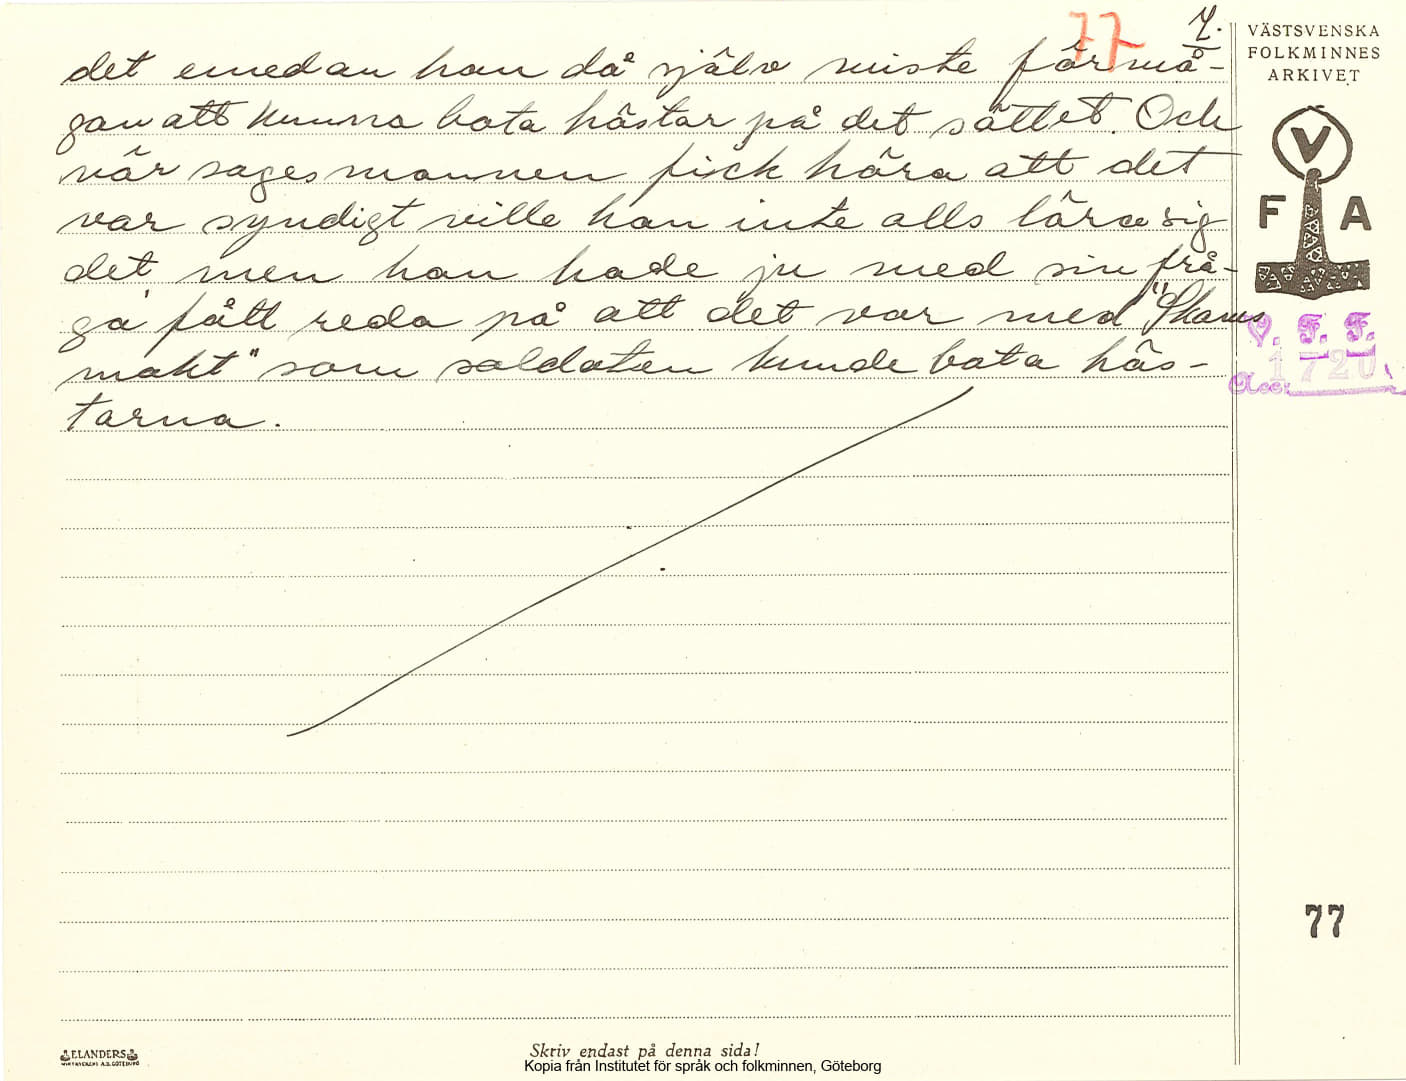 77 7.
det emedan han då själv miste förmå-
gan att kunna bota hästar på det sättet. Och
när sagesmannen fick höra att det
var syndigt ville han inte alls lära sig
det men han hade ju med sin frå-
ga fått reda på att det var med "Skams
makt" som soldaten kunde bota häs-
tarna.
VÄSTSVENSKA
FOLKMINNES
ARKIVET
V
F A
V. F. F.
Acc: 1720
77
ELANDERS
Skriv endast på denna sida!
Kopia från Institutet för språk och folkminnen, Göteborg